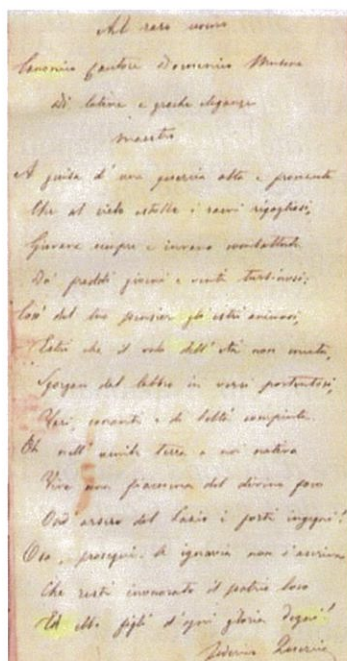 Al raro uomo
Canonico Cantore Domenico
Di latine e greche eleganze
maestro
A guisa d'una quercia alta e
Che al cielo estolle i rami rigogliosi,
Giovane sempre e invano combattuta
Da' freddi giorni e venti turbinosi;
Così del tuo pensier gli estri animosi,
Estri che il volo dell'età non muta,
Sgorgan dal labbro in versi portentosi,
Veri, sonanti e di beltà compiuta.
Oh nell'umile terra a noi nativa
Viva una fiammma del divino foco
Ond'arsero del Lazio i forti ingegni!
Ora, prosegui. A ignavia non s'ascriva
Che resti inonorato il patrio loco
Ed ebbe figli d'ogni gloria degni!
Federico